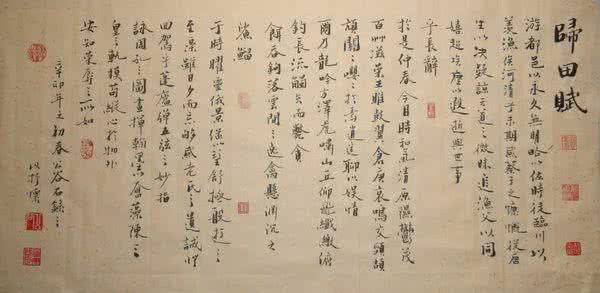 歸田賦
游都邑以永久無明略以佐時徒臨川以
羨漁俟河清乎未期感蔡子之慷慨從唐
生以決疑諒天道之微昧追漁父以同
嬉超埃塵以遐逝與世事
乎長辭
於是仲春令月時和氣清原隰鬱茂
百草滋榮王雎鼓翼倉庚哀鳴交頸頡
頏關々嚶々於焉逍遙聊以娛情
爾乃龍吟方澤虎嘯山丘仰飛纖繳俯
釣長流觸矢而斃貪
餌吞鉤落雲間之逸禽懸淵沉之
鯊鰡
于時曜靈俄景係以望舒極般遊之
至樂雖日夕而忘劬感老氏之遺誡將
回駕乎蓬廬彈五弦之妙指
詠周孔之圖書揮翰墨以奮藻陳三
皇之軌模苟縱心於物外
安知榮辱之所如
辛卯年之初春